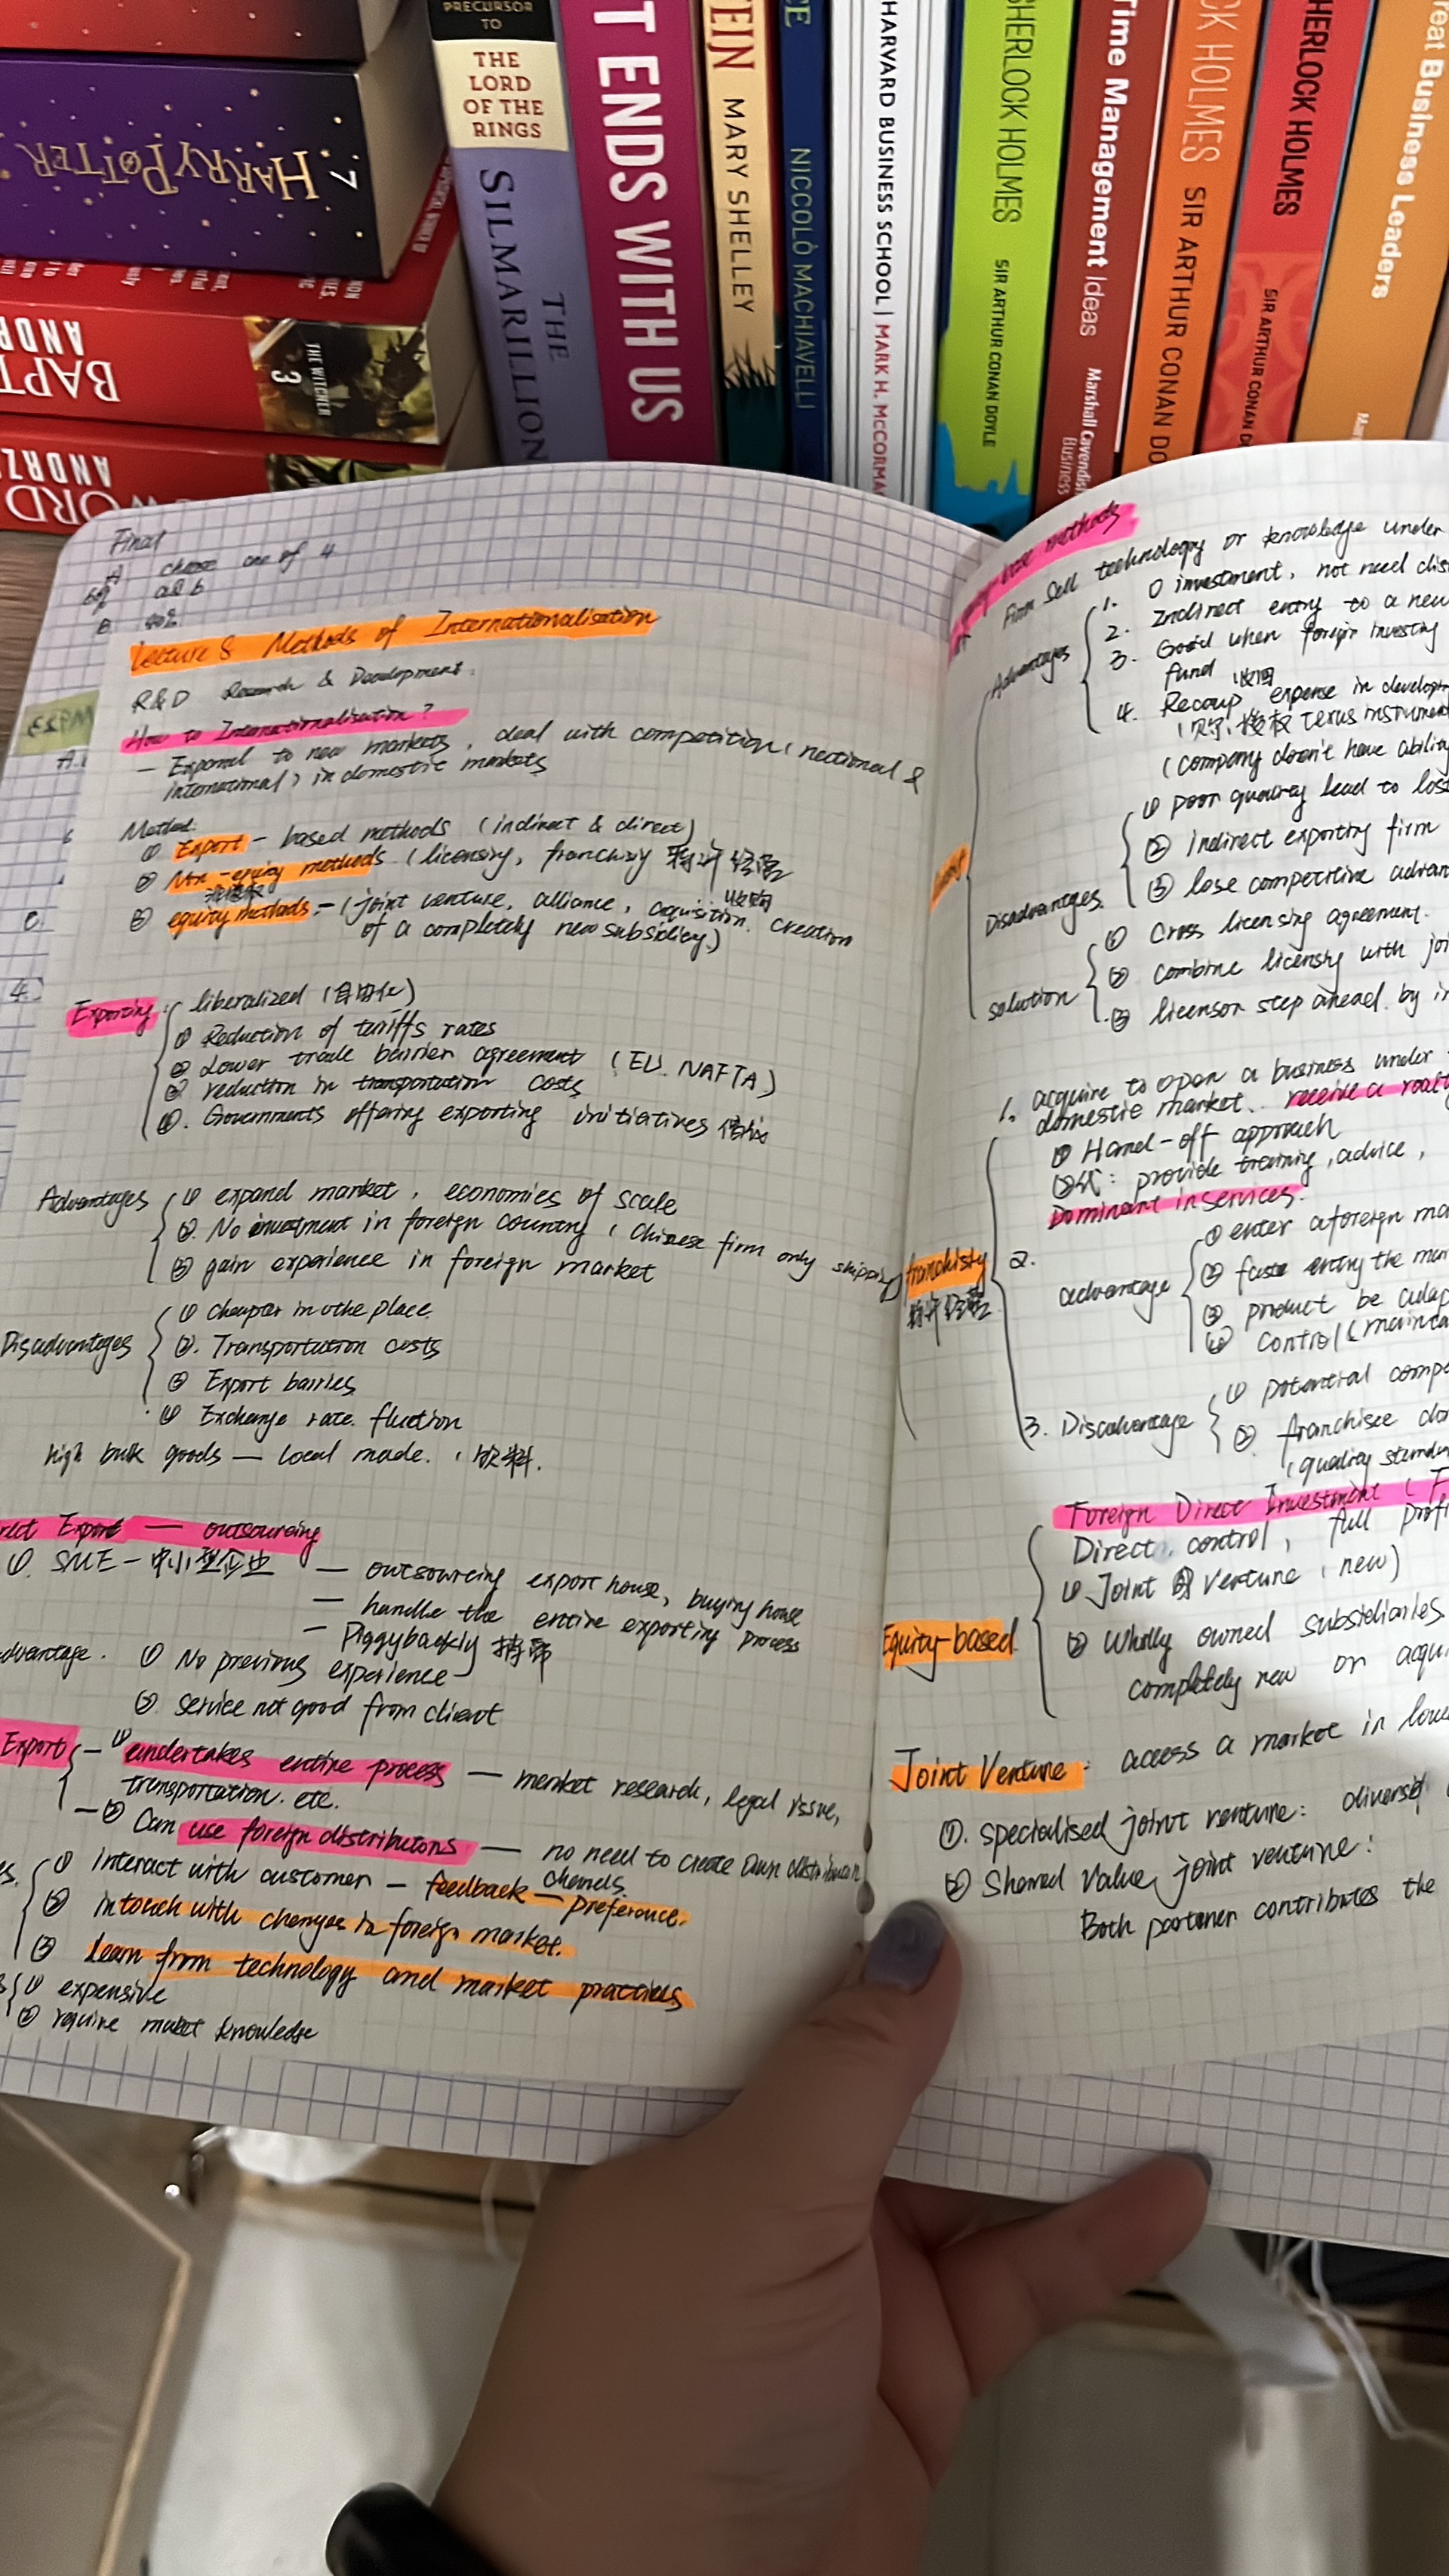 PRECURSOR
TO
THE
LORD
OF THE
RINGS
THE
SILMARILLION
HARRY POTTER
7
BAPT
ANDR
THE WITCHER
3
ORD
ANDRZ
T ENDS WITH US
EIN
MARY SHELLEY
CE
NICCOLÒ MACHIAVELLI
HARVARD BUSINESS SCHOOL | MARK H. MCCORMA
SHERLOCK HOLMES
SIR ARTHUR CONAN DOYLE
Time Management Ideas
Marshall Cavendish
Business
CK HOLMES
SIR ARTHUR CONAN DO
SHERLOCK HOLMES
SIR ARTHUR CONAN D
reat Business Leaders
Final
choose one of 4
Lecture 8 Methods of Internationalisation
R&D Research & Development.
How to Internationalisation?
— Expand to new markets, deal with competition (national &
international) in domestic markets
Method:
① Export - based methods (indirect & direct)
② Non-equity methods (licensing, franchising 特许经营
③ equity methods: - (joint venture, alliance, acquisition, creation
收购
of a completely new subsidiary)
Exporting: liberalized (自由化)
① Reduction of tariffs rates
② Lower trade barrier agreement (EU. NAFTA)
③ reduction in transportation costs
④. Governments offering exporting initiatives
Advantages ① expand market, economies of scale
②. No investment in foreign country (Chinese firm only shipping)
③ gain experience in foreign market
Disadvantages ① cheaper in othe place.
②. Transportation costs
③ Export barries
④ Exchange rate. fluction
high bulk goods — local made.
rect Export — outsourcing
①. SME — 中小型企业 — outsourcing export house, buying house
— handle the entire exporting process
— Piggybackly
dvantage. ① No previous experience
②. service not good from client
Export — ① undertakes entire process — market research, legal issue,
transportation. etc.
— ② Can use foreign distributors — no need to create own distribution
channels.
① interact with customer — feedback — preference.
② intouch with changes in foreign market.
③ Learn from technology and market practices
① expensive
② require market knowledge
methods
Firm sell technology or knowledge under
Advantages 1. 0 investment, not need
2. Indirect entry to a new
3. Good when foreign investing
fund 收回
4. Recoup expense in develop
Texas Instrument
(company doesn't have ability
Disadvantages. ① poor quality lead to los
② indirect exporting firm
③ lose competitive advan
solution ① Cross licensing agreement.
② combine licensing with joi
③ licensor step ahead. by in
franchising
特许经营
1. acquire to open a business under
domestic market. receive a roalt
① Hand-off approach
provide training, advice,
Dominant in services.
2. advantage ① enter a foreign ma
② faste entry the mar
③ product be adap
④ control (mainta
3. Disadvantage ① potential compe
② franchisee do
(quality standa
Equity-based Foreign Direct Investment (F
Direct control, full profi
① Joint Venture (new)
② Wholly owned subsidiaries
completely new or acqui
Joint Venture: access a market in lowe
①. specialised joint venture: diversif
② Shared value joint venture:
Both partner contributes the